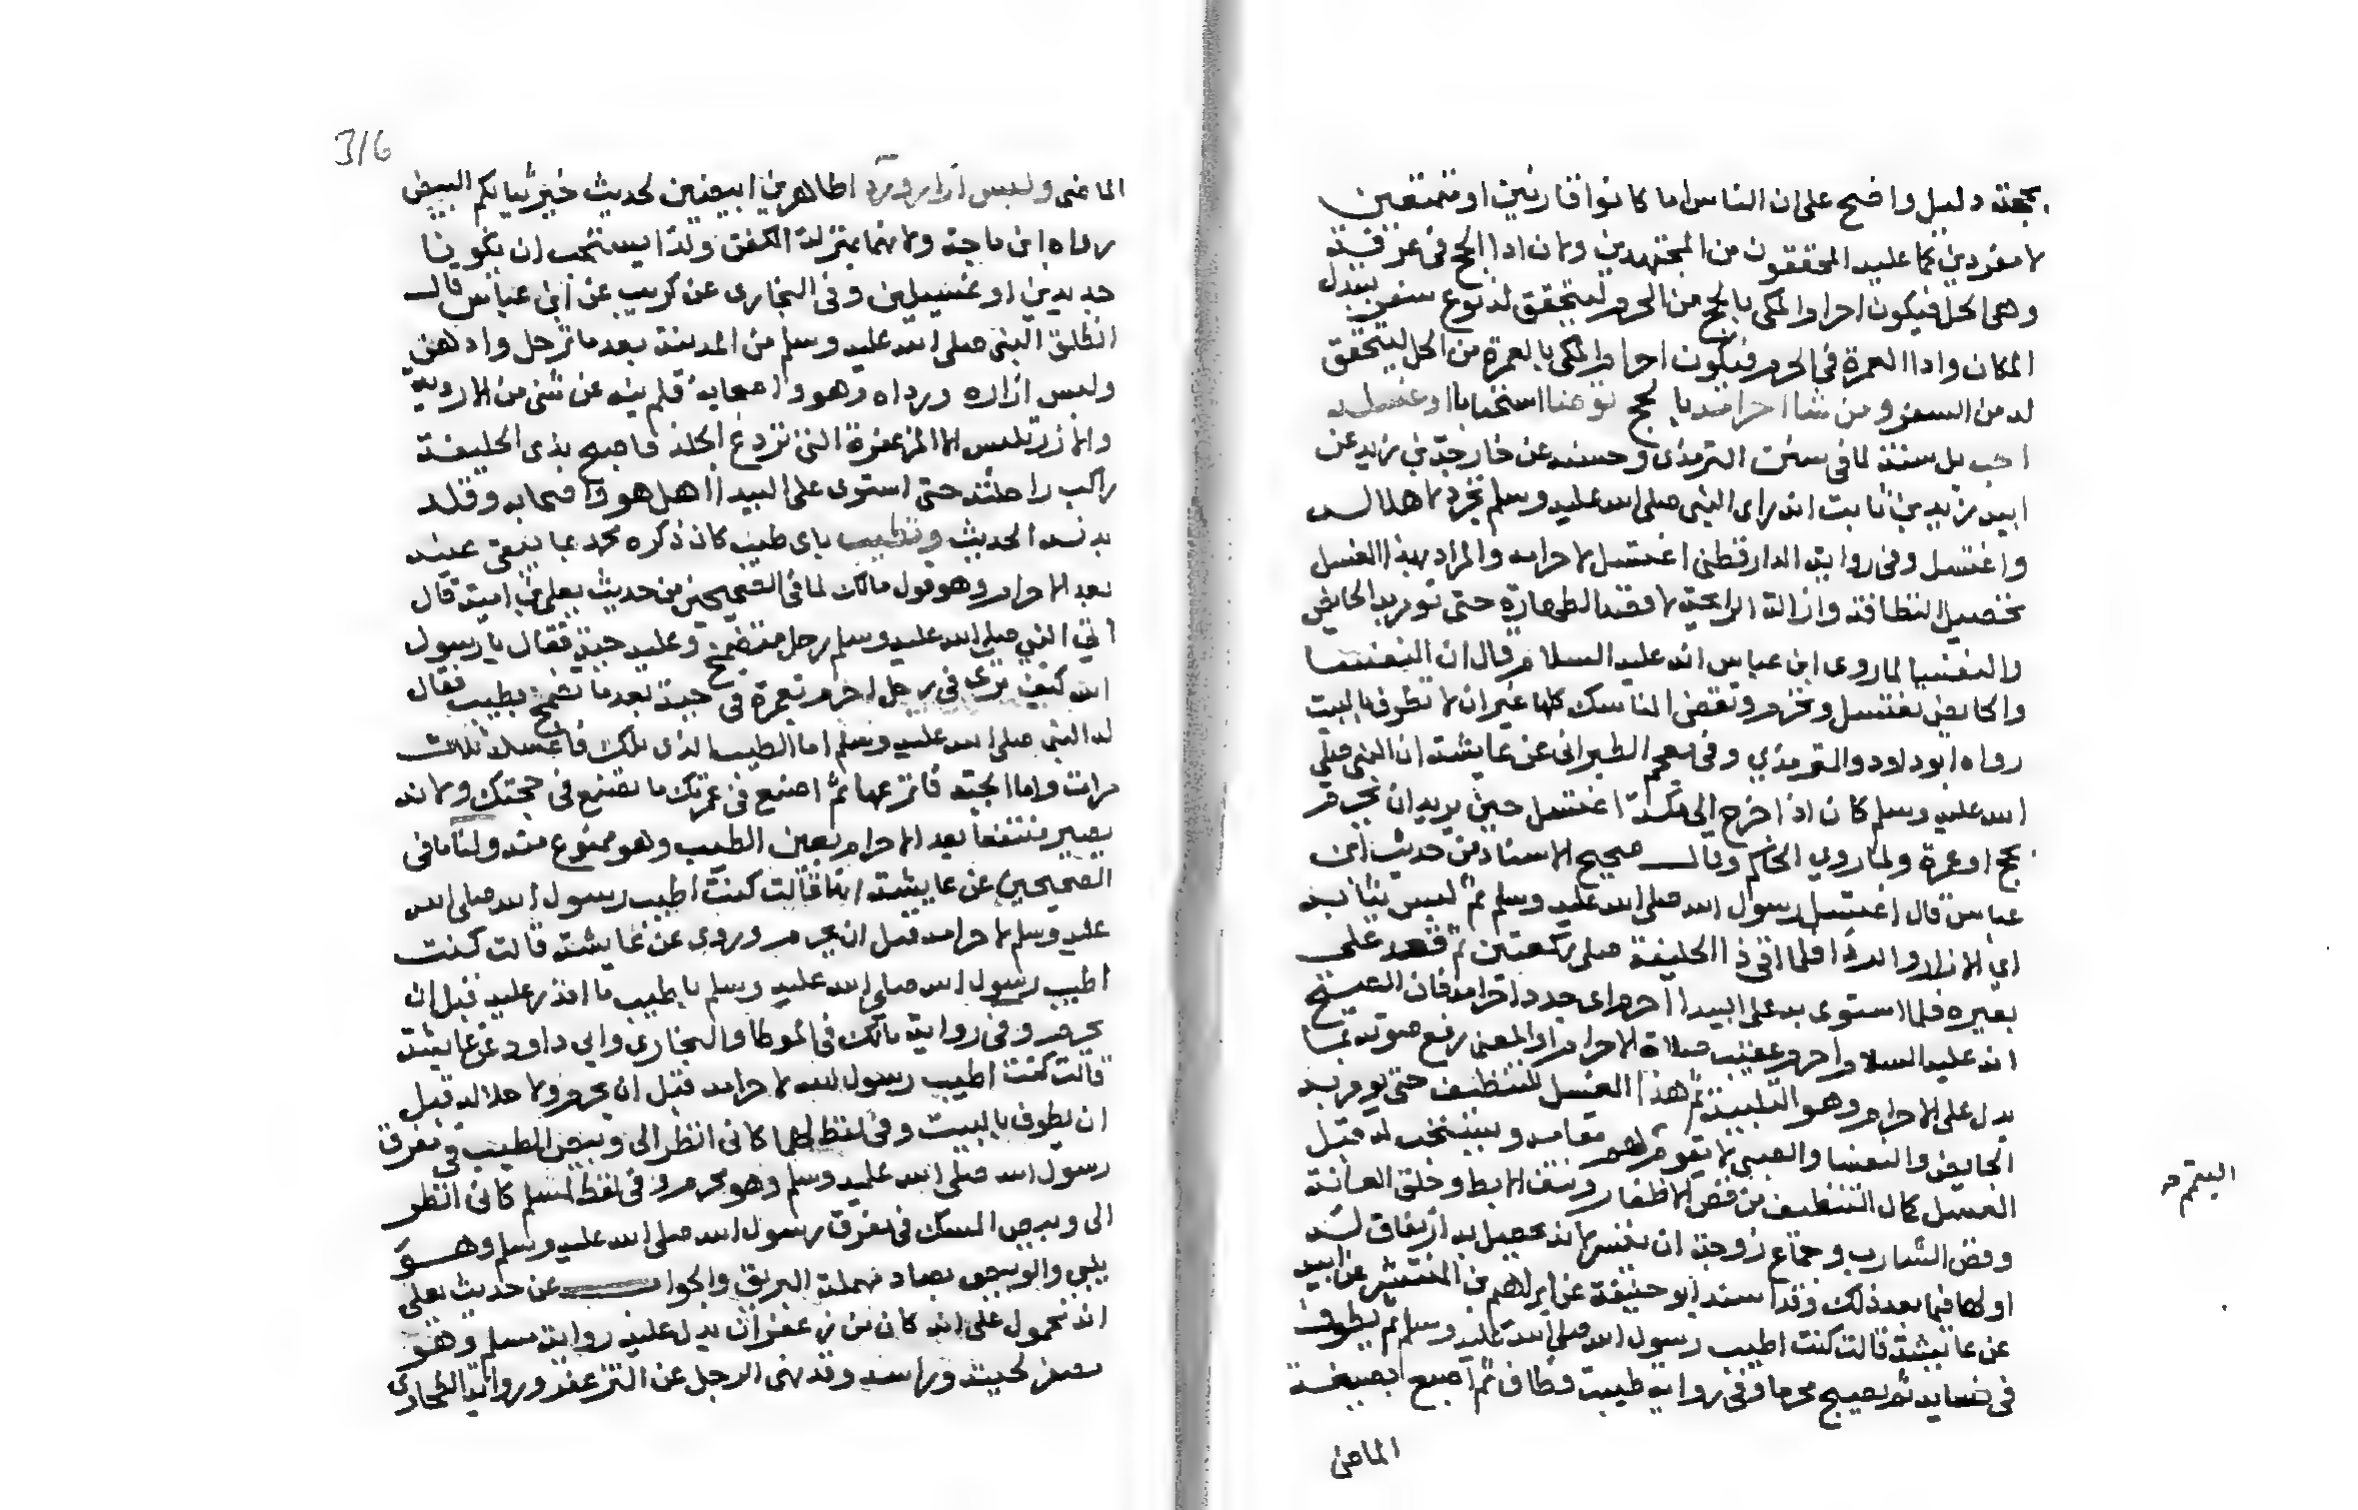 بحجته دليل واضح على ان الناس اما كانوا قارنين او متمتعين
لا مفردين كما عليه المحققون من المجتهدين ولان اداا الحج في عرفة
وهي الحل فيكون احرام المكي بالحج من الحرم ليتحقق له نوع سفر بتبدل
المكان واداا العمرة في الحرم فيكون احرام المكي بالعمرة من الحل ليتحقق
له من السفر ومن شاا احرامه بالحج توضا استحبابا او غسله
احب بل سنته لما في سنن الترمذي وحسنه عن خارجة بن زيد عن
ابيه زيد بن ثابت انه راى النبي صلى الله عليه وسلم تجرد لاهلاله
واغتسل وفي رواية الدارقطني اغتسل لاحرامه والمراد بهذا الغسل
تحصيل النظافة وازالة الرايحة لا فقد الطهارة حتى تومر به الحايض
والنفسا لما روى ابن عباس انه عليه السلام قال ان النفسا
والحايض تغتسل وتحرم وتقضي المناسك كلها غير ان لا تطوف بالبيت
رواه ابو داود والترمذي وفي معجم الطبراني عن عايشة ان النبي صلى
الله عليه وسلم كان اذا خرج الى مكة اغتسل حين يريد ان يحرم
بحج او عمرة ولما روي الحاكم وقال صحيح الاسناد من حديث ابن
عباس قال اغتسل رسول الله صلى الله عليه وسلم ثم لبس ثيابه
اي الازار والردا فلما اتى ذا الحليفة صلى ركعتين ثم قعد على
بعيره فلما استوى به على البيدا احرم اي جدد احرامه فان الصحيح
انه عليه السلام احرم عقيب صلاة الاحرام او المعنى رفع صوته بما
يدل على الاحرام وهو التلبية ثم هذا الغسل للتنظيف حتى يومر به
الحايض والنفسا والصبي لا يقوم مقامه ويستحب له قبل
التيمم
الغسل كمال التنظيف من قص الاظفار ونتف الابط وحلق العانة
وقص الشارب وجماع زوجته ان تيسر لانه يحصل به ارتفاق له
او لها فيما بعد ذلك وقد اسند ابو حنيفة عن ابراهيم بن المنتشر عن ابيه
عن عايشة قالت كنت اطيب رسول الله صلى الله عليه وسلم ثم يطوف
في نسايه ثم يصبح محرما وفي رواية طيبت فطاف ثم اصبح بصيغة
الماضي
316
الماضي ولبس ازار وردا طاهرين ابيضين لحديث خير ثيابكم البيض
رواه ابن ماجة ولانهما بمنزلة الكفن ولذا يستحب ان يكونا
جديدين او غسيلين وفي البخاري عن كريب عن ابن عباس قال
انطلق النبي صلى الله عليه وسلم من المدينة بعد ما ترجل وادهن
ولبس ازاره ورداه هو واصحابه فلم ينه عن شي من الاردية
والازر تلبس الا المزعفرة التي تردع الجلد فاصبح بذي الحليفة
راكب راحلته حتى استوى على البيدا اهل هو واصحابه وقلد
بدنته الحديث وتطيب باي طيب كان ذكره محمد بما يبقى عينه
بعد الاحرام وهو قول مالك لما في الصحيحين من حديث يعلى بن امية قال
اتي النبي صلى الله عليه وسلم رجل متضمخ وعليه جبة فقال يا رسول
الله كيف ترى في رجل احرم بعمرة في جبة بعد ما تضمخ بطيب فقال
له النبي صلى الله عليه وسلم اما الطيب الذي بك فاغسله ثلاث
مرات واما الجبة فانزعها ثم اصنع في عمرتك ما تصنع في حجتك ولانه
يصير منتفعا بعد الاحرام بعين الطيب وهو ممنوع منه ولنا ما في
الصحيحين عن عايشة انها قالت كنت اطيب رسول الله صلى الله
عليه وسلم لاحرامه قبل ان يحرم وروى عن عايشة قالت كنت
اطيب رسول الله صلى الله عليه وسلم باطيب ما اقدر عليه قبل ان
يحرم وفي رواية مالك في الموطا والبخاري وابي داود عن عايشة
قالت كنت اطيب رسول الله لاحرامه قبل ان يحرم ولاحلاله قبل
ان يطوف بالبيت وفي لفظ لهما كاني انظر الى وبيص الطيب في مفرق
رسول الله صلى الله عليه وسلم وهو محرم وفي لفظ لمسلم كاني انظر
الى وبيص المسك في مفرق رسول الله صلى الله عليه وسلم وهو
يلبي والوبيص بصاد مهملة البريق والجواب عن حديث يعلى
انه محمول على انه كان من زعفران يدل عليه رواية مسلم وهو
مصفر لحيته وراسه وقد نهى الرجل عن التزعفر ورواية الطحاوي